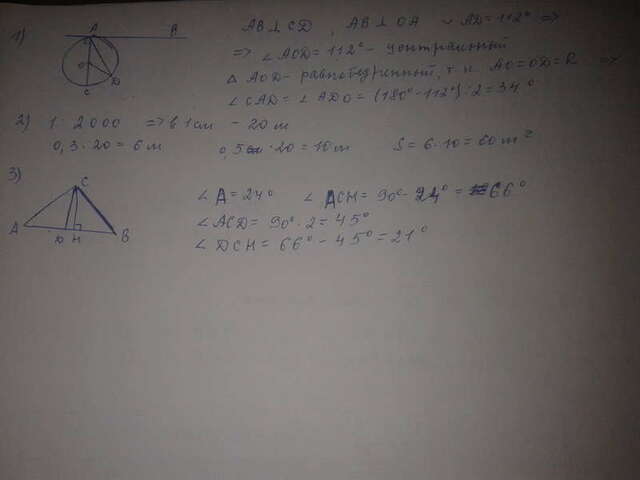 1) A B O D C
AB ⊥ CD, AB ⊥ OA ᴗ AD = 112° =>
=> ∠AOD = 112° - центральный
△ AOD - равнобедренный, т.к. AO = OD = R =>
∠CAD = ∠ADO = (180° - 112°) : 2 = 34°
2) 1 : 2000 => в 1 см - 20 м
0,3 · 20 = 6 м 0,5 · 20 = 10 м S = 6 · 10 = 60 м²
3) C A D H B
∠A = 24° ∠ACH = 90° - 24° = 66°
∠ACD = 90° : 2 = 45°
∠DCH = 66° - 45° = 21°